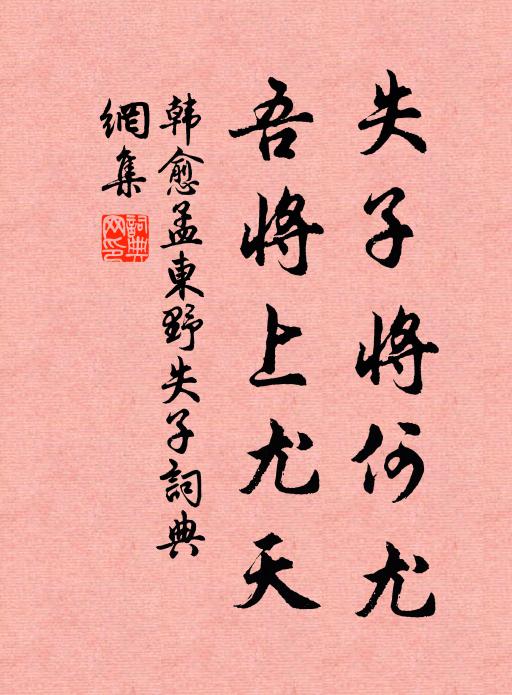 失子將何尤
吾將上尤天
韩愈孟東野失子詞典
網集
詞典
网印